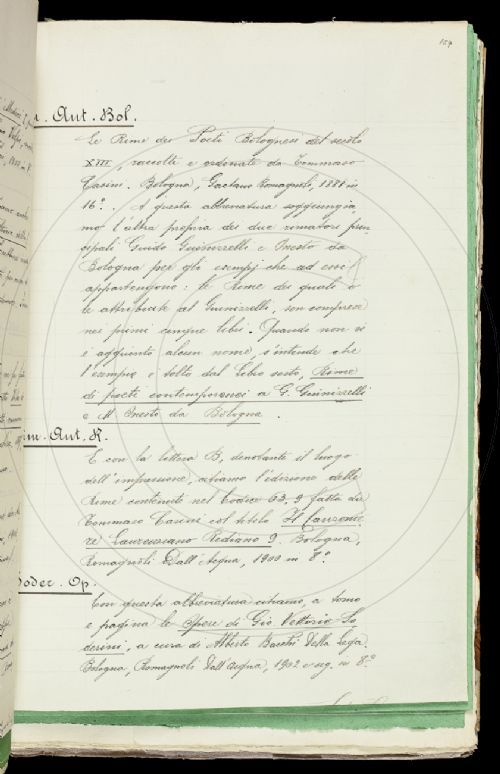 159
m. Ant. Bol.
Le Rime dei Poeti Bolognesi del secolo
XIII, raccolte e ordinate da Tommaso
Casini. Bologna, Gaetano Romagnoli, 1881 in
16°. . A questa abbreviatura soggiungia
mo l'altra propria dei due rimatori prin
cipali Guido Guinizzelli e Onesto da
Bologna per gli esempj che ad essi
appartengono: le Rime dei quali o
le attribuite al Guinizzelli, son comprese
nei primi cinque libri. Quando non vi
è aggiunto alcun nome, s'intende che
l'esempio è tolto dal Libro sesto, Rime
di poeti contemporanei a G. Guinizzelli
e M. Onesto da Bologna.
im. Ant. R.
E con la lettera B, denotante il luogo
dell'impressione, citiamo l'edizione delle
Rime contenute nel Codice 63, 9 fatta da
Tommaso Casini col titolo Il Canzonie
re Laurenziano Rediano 9. Bologna,
Romagnoli Dall'Acqua, 1900 in 8°.
Soder. Op.
Con questa abbreviatura citiamo, a tomo
e pagina le Opere di Gio Vettorio So
derini, a cura di Alberto Bacchi Della Lega,
Bologna, Romagnoli Dall'Acqua, 1902 e seg. in 8°.